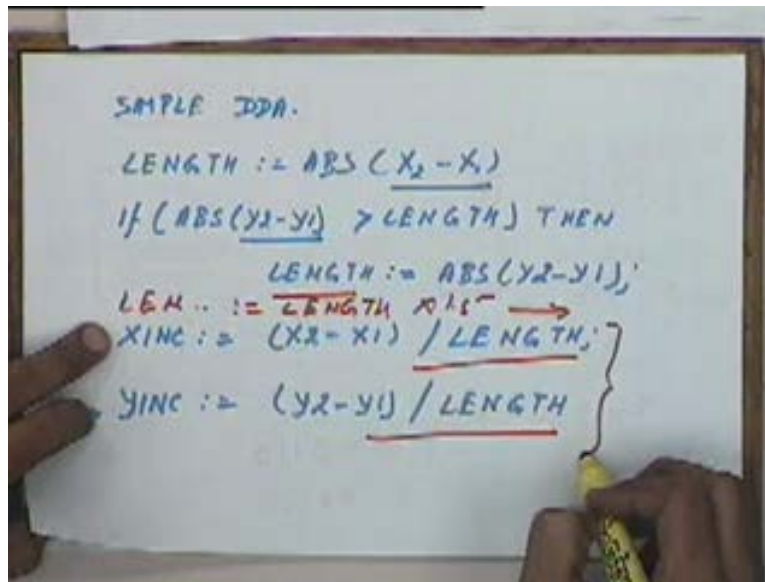 SIMPLE DDA.
LENGTH := ABS (X2 - X1)
If (ABS(Y2-Y1) > LENGTH) THEN
LENGTH := ABS(Y2-Y1);
LEN .. := LENGTH * 1.5
XINC := (X2-X1) / LENGTH;
YINC := (Y2-Y1) / LENGTH